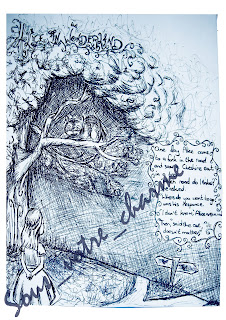 Alice In Wonderland
One day Alice came
to a fork in the road
and saw a Cheshire cat
in a tree.
Which road do I take?
she asked.
Where do you want to go?
was his response.
I don't know, Alice answered.
Then, said the cat,
it doesn't matter.
Sous_votre_charme